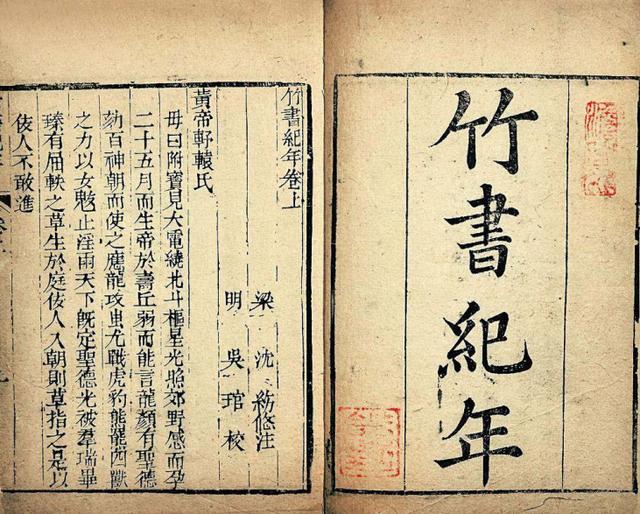 竹書紀年
竹書紀年卷上
梁 沈 約修注
明 吳 琯 校
黃帝軒轅氏
母曰附寶見大電繞北斗樞星光照郊野感而孕
二十五月而生帝於壽丘弱而能言龍顏有聖德
劾百神朝而使之應龍攻蚩尤戰虎豹熊羆四獸
之力以女魃止淫雨天下旣定聖德光被羣瑞畢
臻有屈軼之草生於庭佞人入朝則草指之是以
佞人不敢進